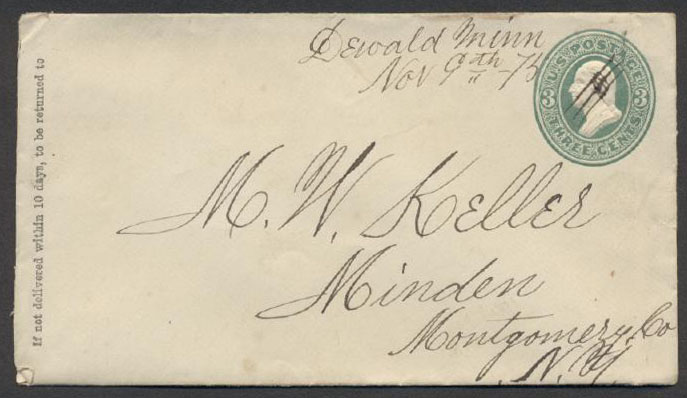 Dewald Minn
Nov 9th 75
U.S. POSTAGE
3 3
THREE CENTS
M. W. Keller
Minden
Montgomery, Co
N. Y.
If not delivered within 10 days, to be returned to